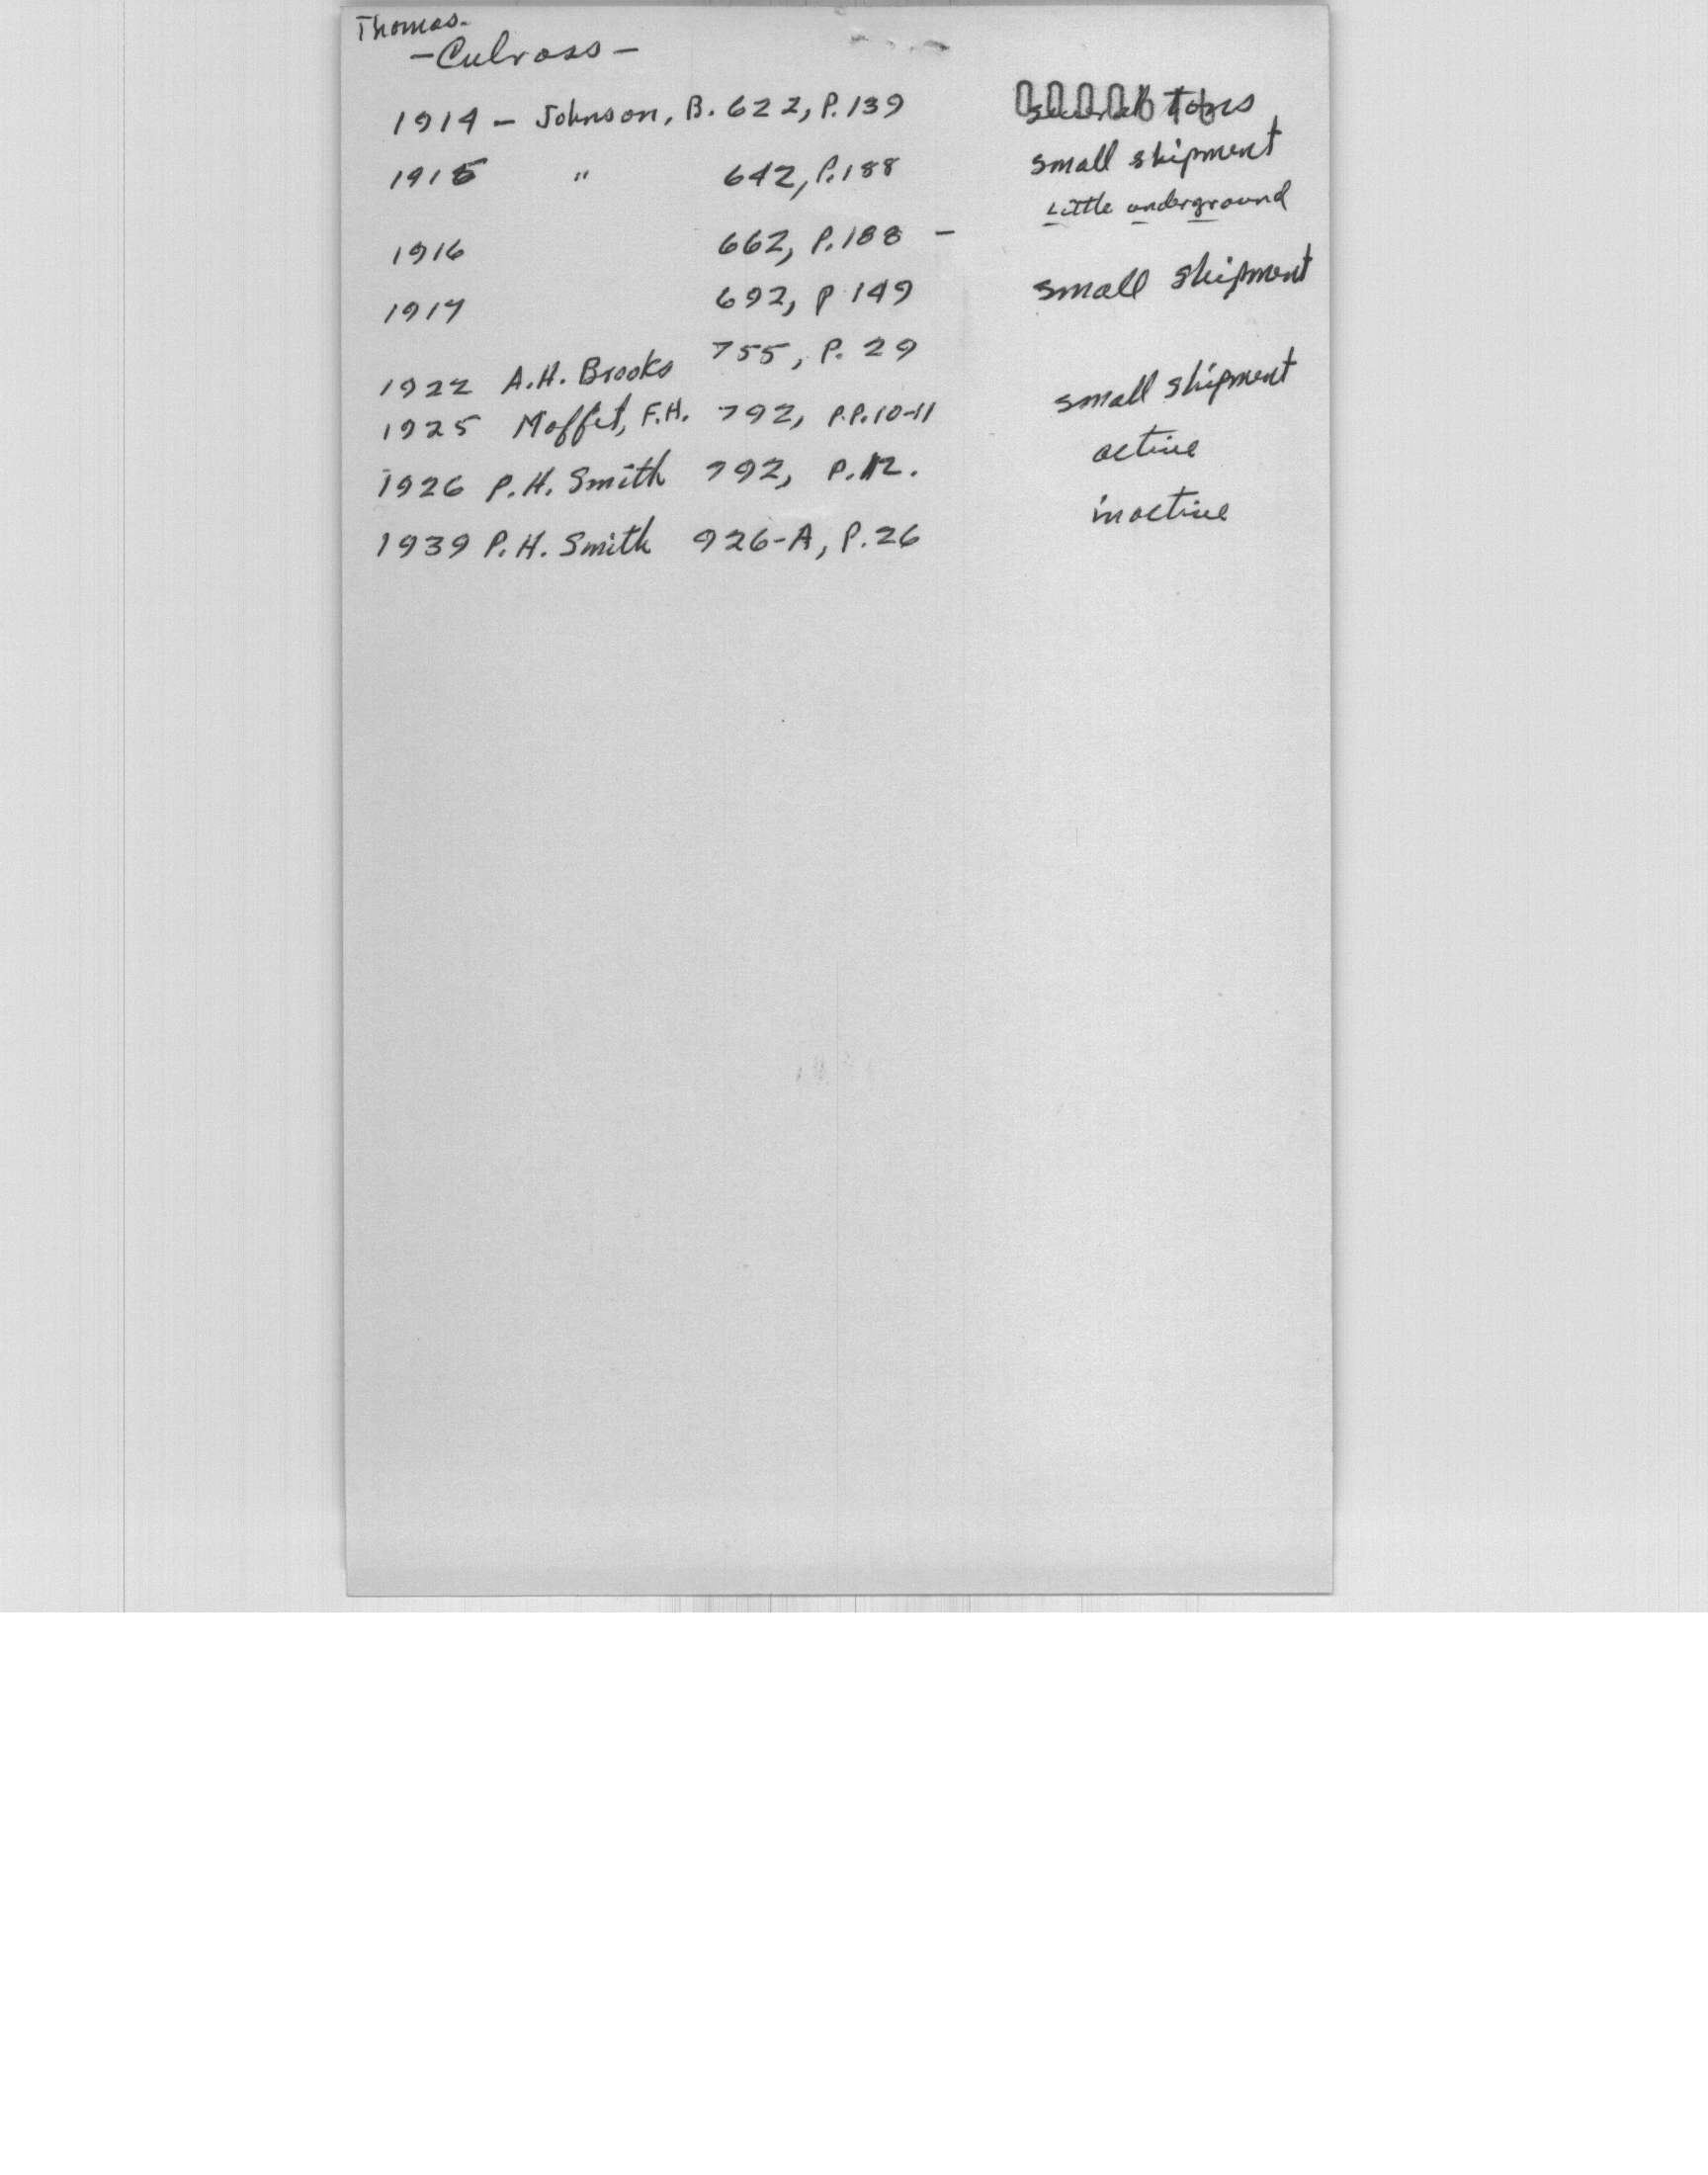 Thomas-
- Culross -
1914 - Johnson, B. 622, P.139 several tons
1915 " 642, P.188 small shipment
1916 662, P.188 - Little underground
1917 692, P 149 small shipment
1922 A.H. Brooks 755, P. 29
1925 Moffit, F.H. 792, P.P.10-11 small shipment
1926 P.H. Smith 792, P.12. active
1939 P.H. Smith 926-A, P.26 inactive